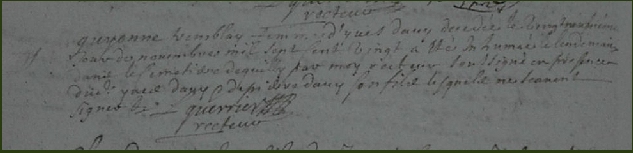 recteur
guyonne tremblay femme d'yves dany decedée le vingt neufvieme
jour de novembre mil sept cent vingt a esté inhumee le lendemain
dans le cimetiere par moy recteur soussigné en presence
dud. yves dany & de pierre dany son fils lesquels ne scavent
signer
guerrier
recteur